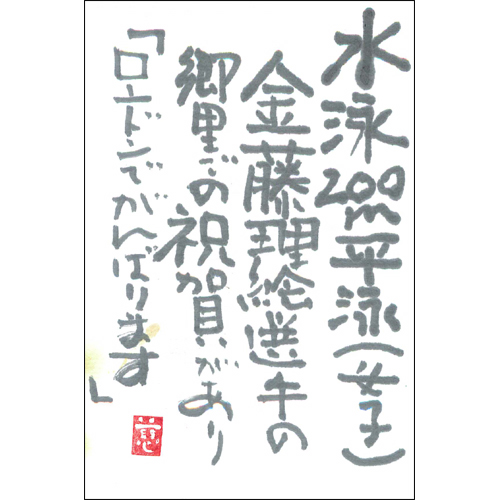 水泳200m平泳(女子)
金藤理絵選手の
郷里での祝賀があり
「ロンドンでがんばります」